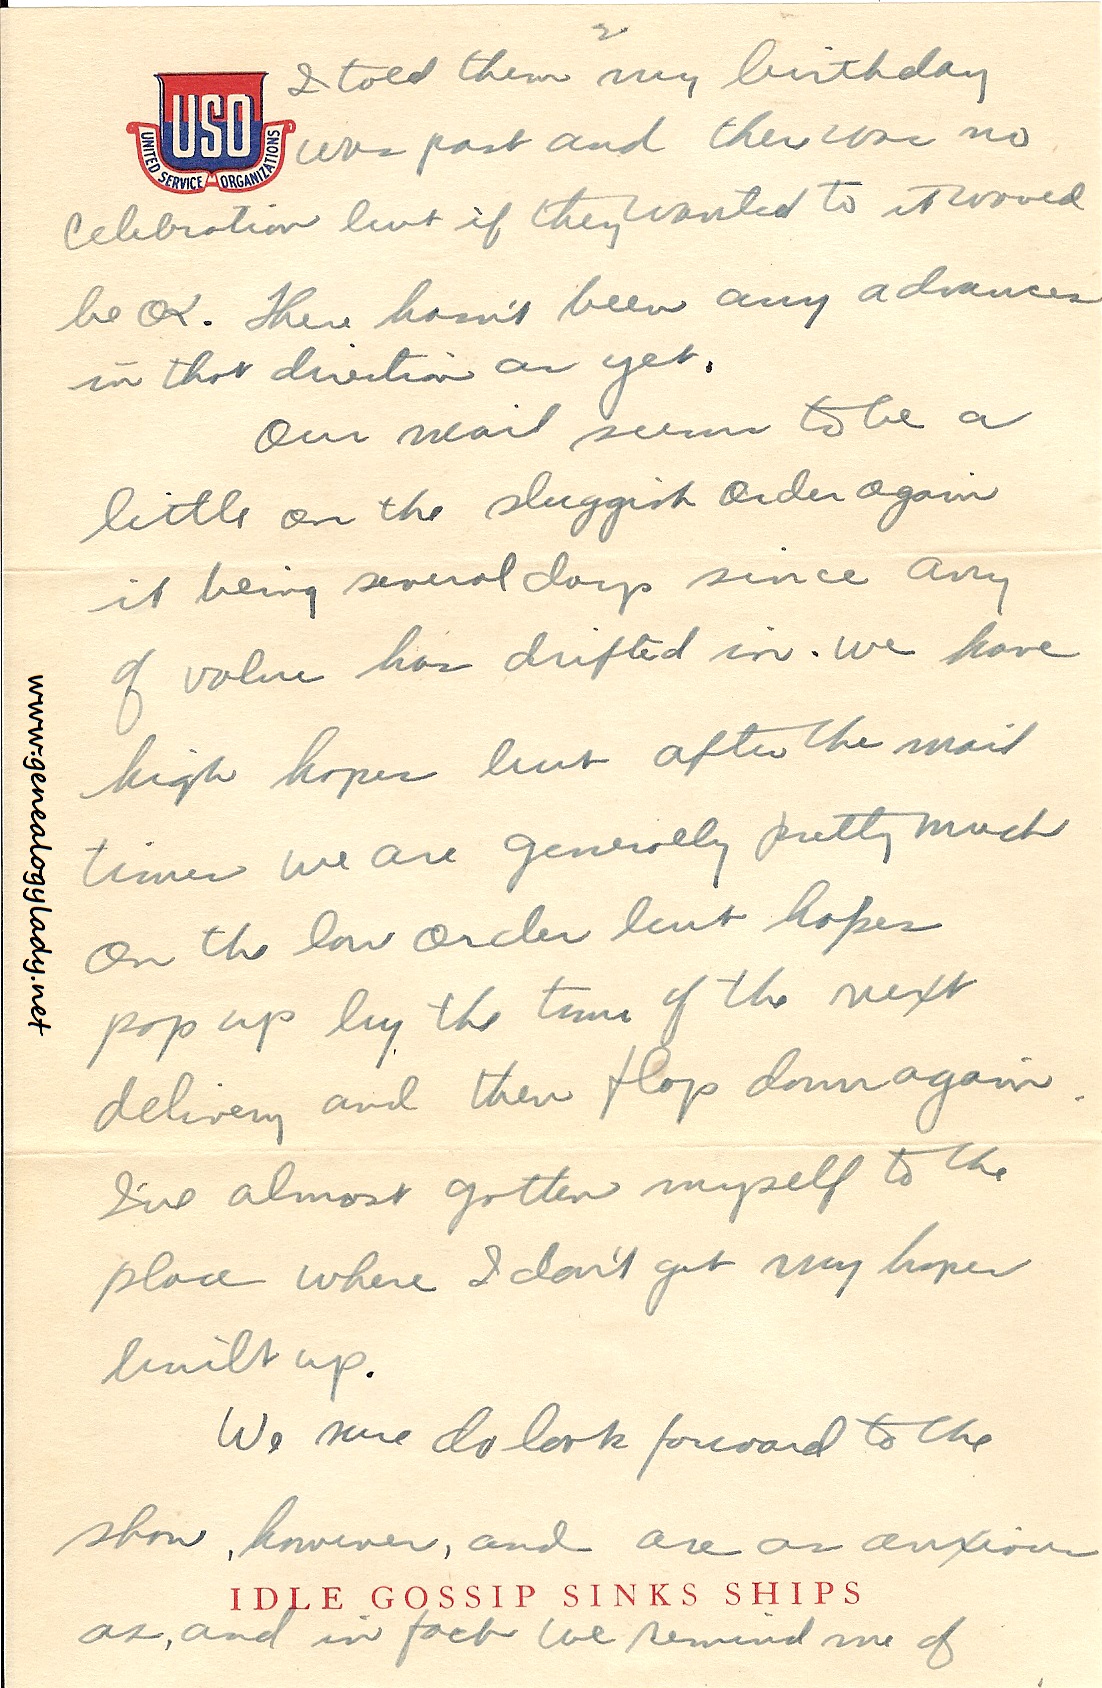 2
I told them my birthday
USO
UNITED SERVICE ORGANIZATIONS
was past and there was no
celebration but if they wanted to it would
be OK. There hasn't been any advances
in that direction as yet.
Our mail seems to be a
little on the sluggish order again
it being several days since any
of value has drifted in. We have
high hopes but after the mail
times we are generally pretty much
on the low order but hopes
pop up by the time of the next
delivery and then flop down again.
I've almost gotten myself to the
place where I don't get my hopes
built up.
We sure do look forward to the
show, however, and are as anxious
IDLE GOSSIP SINKS SHIPS
as, and in fact we remind me of
www.genealogylady.net